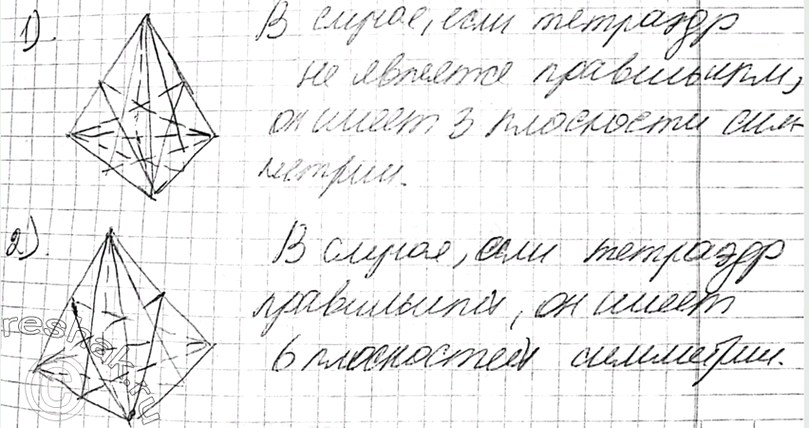 1). В случае, если тетраэдр
не является правильным,
он имеет 3 плоскости сим-
метрии.
2). В случае, если тетраэдр
правильный, он имеет
6 плоскостей симметрии.
reshak.ru
©